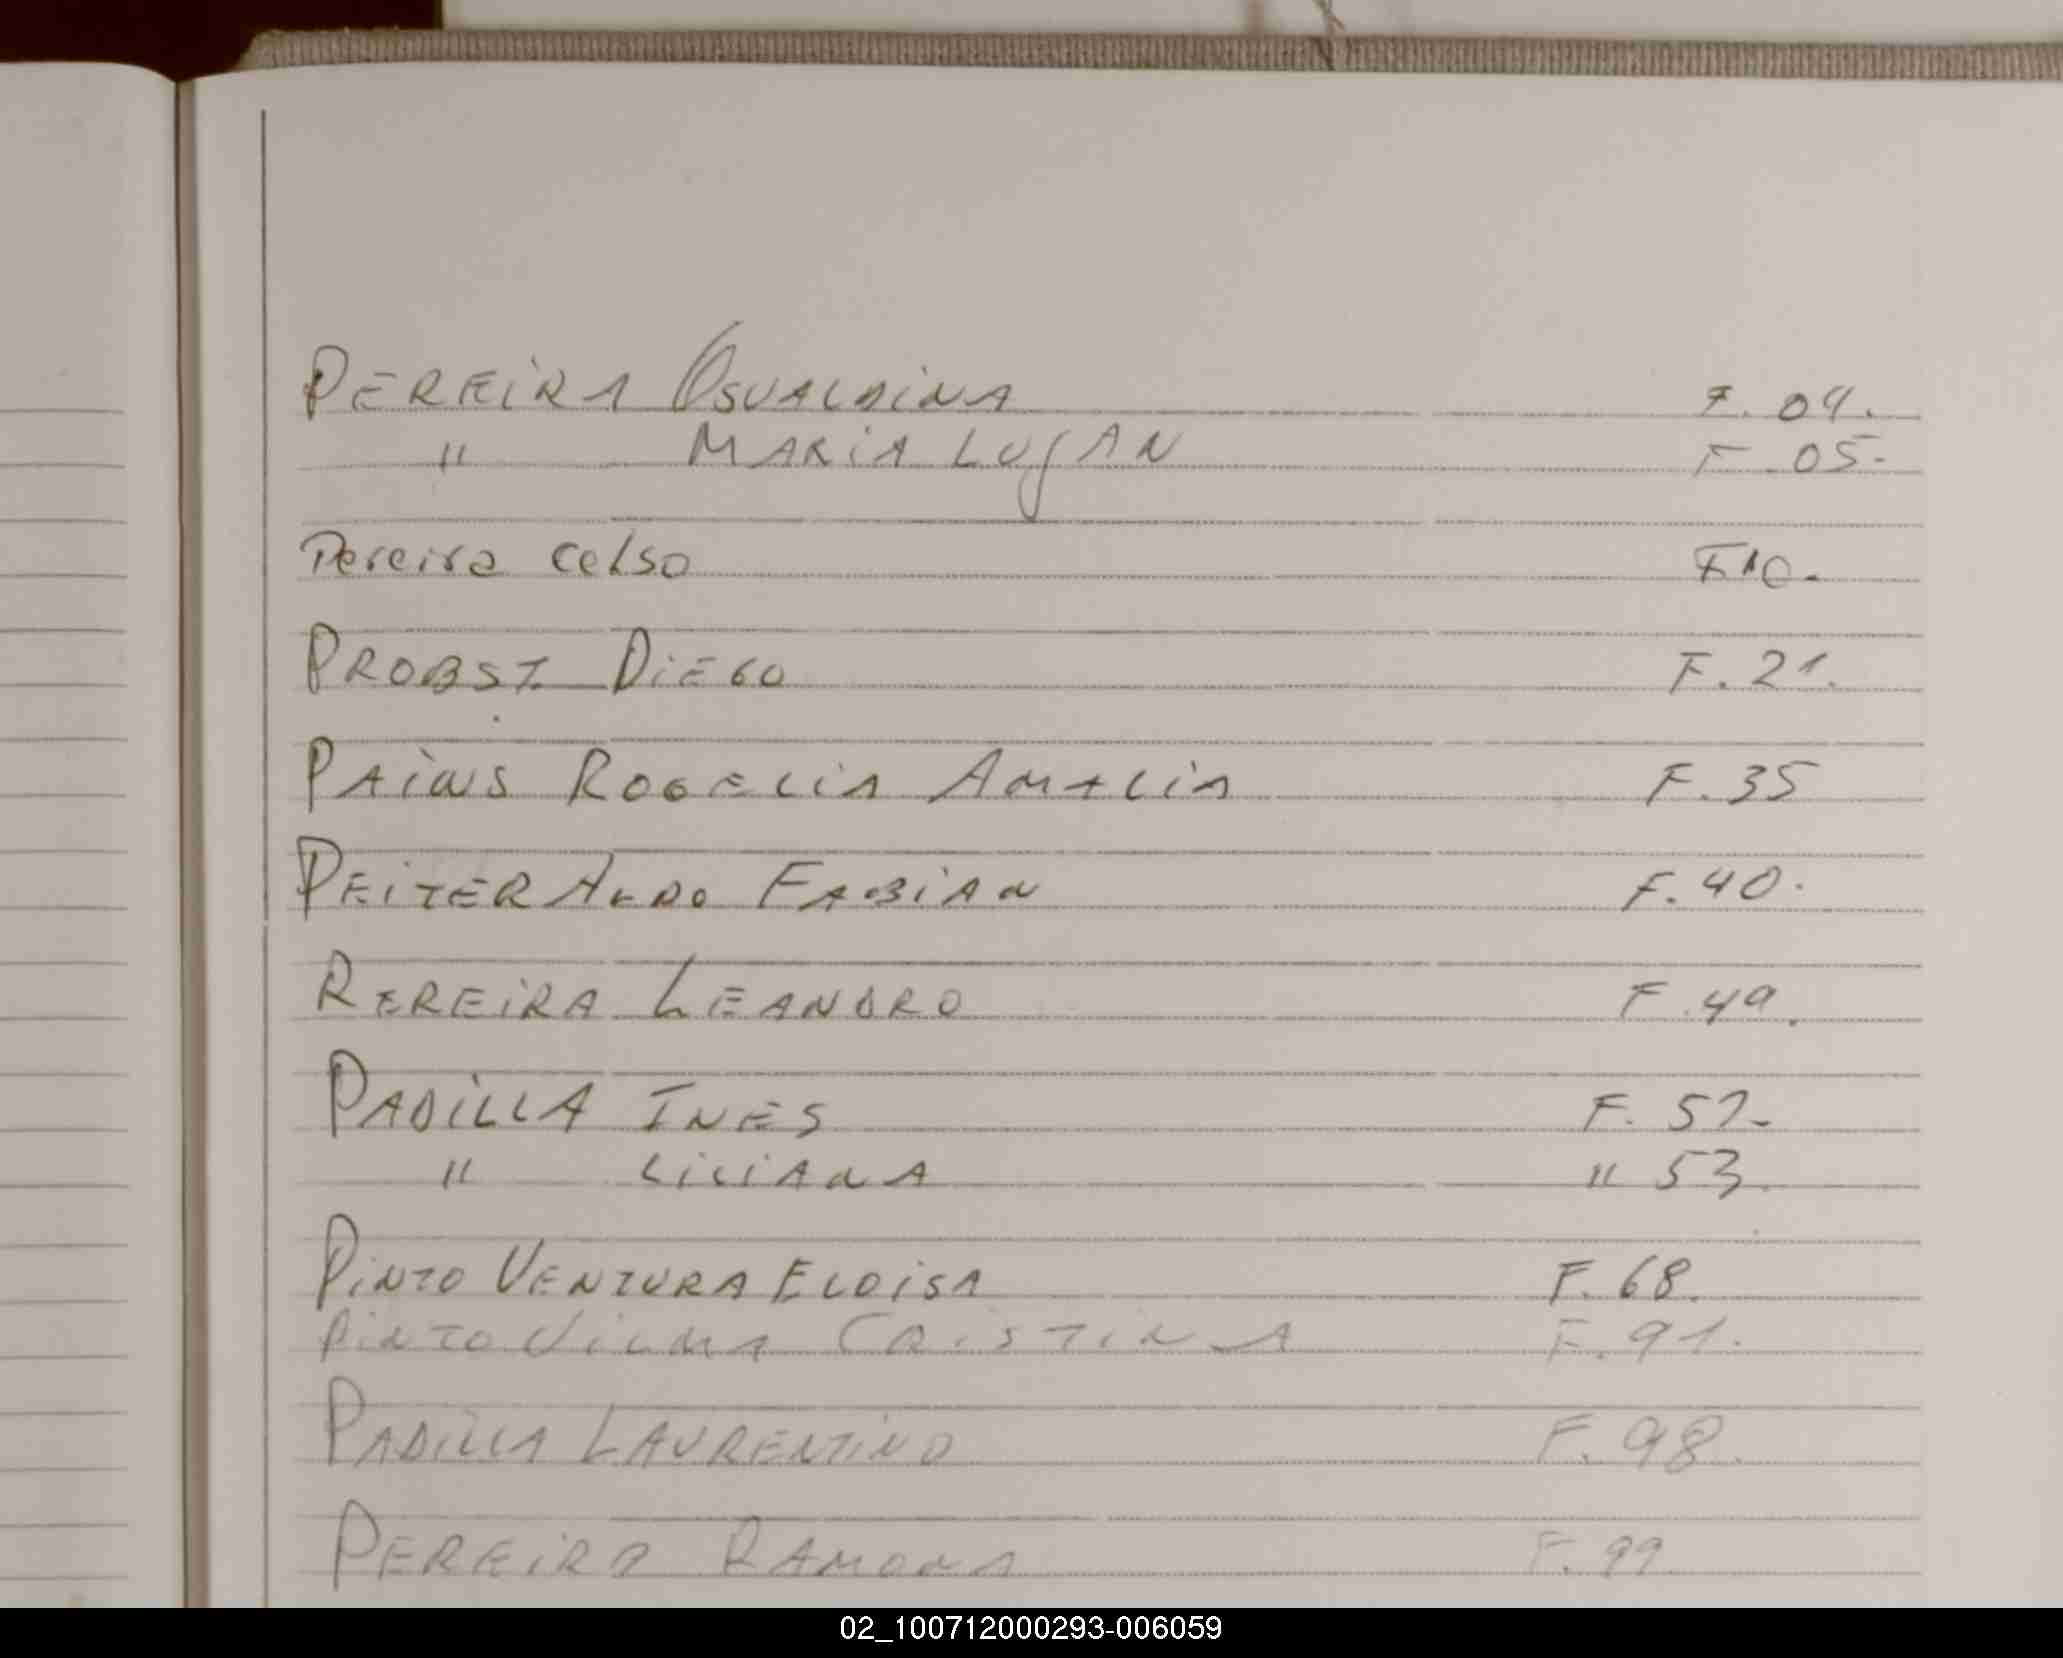 PEREIRA OSVALDINA F. 04.
" MARIA LUJAN F 05-
Pereira Celso F10.
PROBST DIEGO F. 21.
PAIWS ROGELIA AMALIA F. 35
PEITER ALDO FABIAN F. 40.
REREIRA LEANDRO F. 49.
PADILLA INES F. 51-
" LILIANA " 53.
PINTO VENTURA ELOISA F. 68.
PINTO VILMA CRISTINA F. 91.
PADILLA LAURENTINO F. 98.
PEREIRA RAMONA F. 99
02_100712000293-006059